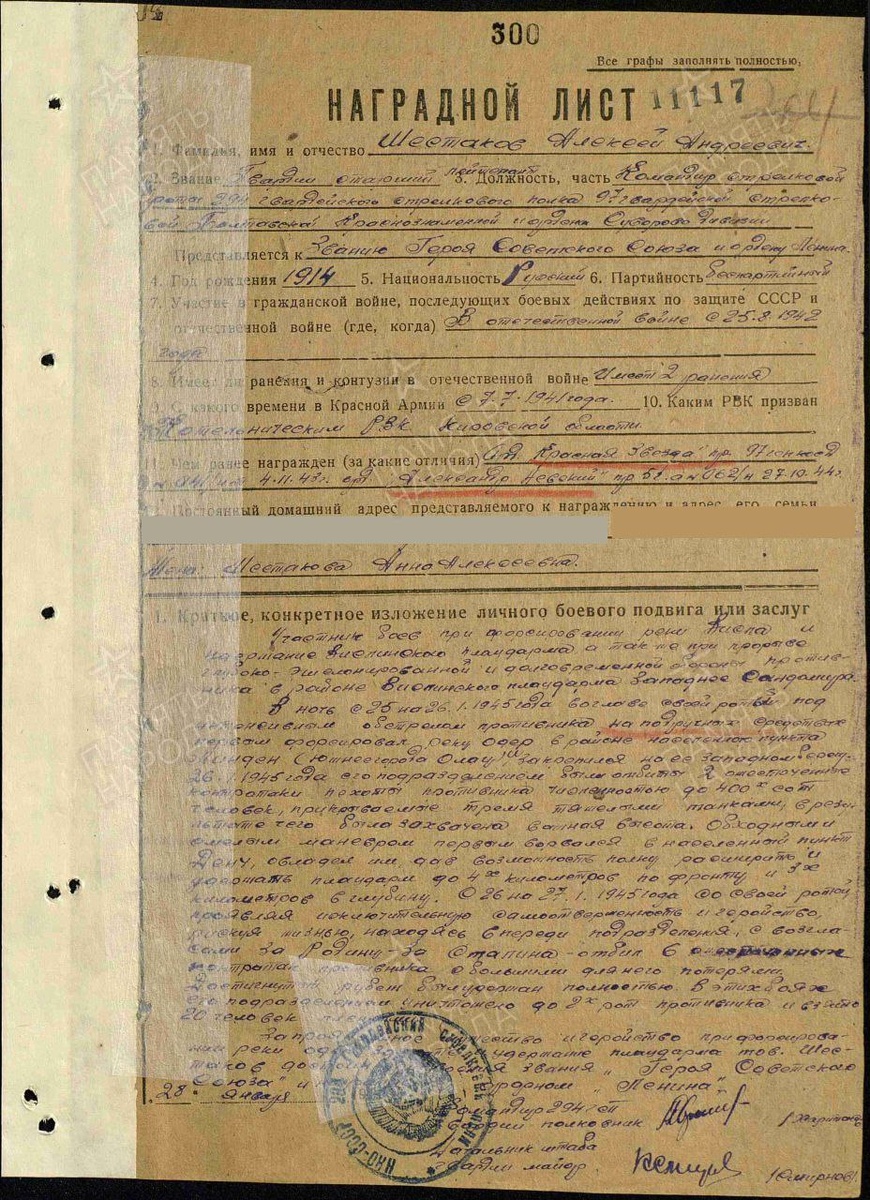 300
Все графы заполнять полностью,
НАГРАДНОЙ ЛИСТ 11117
1. Фамилия, имя и отчество Шестаков Алексей Андреевич.
2. Звание Гвардии старший лейтенант 3. Должность, часть Командир стрелковой
роты 294 гвардейского стрелкового полка 97 гвардейской стрелко-
вой Полтавской Краснознаменной и ордена Суворова дивизии
Представляется к Званию Героя Советского Союза и ордену Ленина.
4. Год рождения 1914 5. Национальность Русский 6. Партийность беспартийный
7. Участие в гражданской войне, последующих боевых действиях по защите СССР и
отечественной войне (где, когда) В отечественной войне с 25.8.1942
года
8. Имеет ли ранения и контузии в отечественной войне Имеет 2 ранения
9. С какого времени в Красной Армии с 7.7.1941 года. 10. Каким РВК призван
Котельническим РВК Кировской области.
11. Чем ранее награжден (за какие отличия) Орд. "Красная Звезда" пр. 97
4.11.43г. орд. "Александр Невский" пр. 27.10.44г.
12. Постоянный домашний адрес представляемого к награждению и адрес его семьи
Жена: Шестакова Анна Алексеевна.
1. Краткое, конкретное изложение личного боевого подвига или заслуг
Участник боев при форсировании реки Висла и
удержание Вислинского плацдарма а так-же при прорыве
глубоко-эшелонированной и долговременной обороны против-
ника в районе Вислинского плацдарма западнее Сандомира.
В ночь с 25 на 26.1.1945 года во главе своей роты под
интенсивным обстрелом противника на подручных средствах
первым форсировал реку Одер в районе населенного пункта
Линден (южнее города Олау) закрепился на ее западном берегу.
26.1.1945 года его подразделением были отбиты 2 ожесточенные
контратаки пехоты противника численностью до 400х сот
человек, прикрываемые тремя тяжелыми танками, в резу-
льтате чего была захвачена важная высота. Обходным и
смелым маневром первым ворвался в населенный пункт
овладел им, дав возможность полку расширить и
удержать плацдарм до 4х километров по фронту и 3х
километров в глубину. С 26 на 27.1.1945 года со своей ротой
проявляя исключительную самоотверженность и геройство,
рискуя жизнью, находясь впереди подразделения, с возгла-
сами за Родину - за Сталина - отбил 6
контратак противника с большими для него потерями.
Достигнутый рубеж был удержан полностью. В этих боях
его подразделением уничтожено до 2х рот противника и взято
20 человек
За мужество и геройство при форсирова-
нии реки Одер удержание плацдарма тов. Шес-
таков достоин звания "Героя Советского
Союза" и орденом "Ленина"
28 января
Командир 294 гсп
гвардии полковник
Начальник штаба
гвардии майор (Смирнов)
НКО-СССР
ПАМЯТЬ НАРОДА